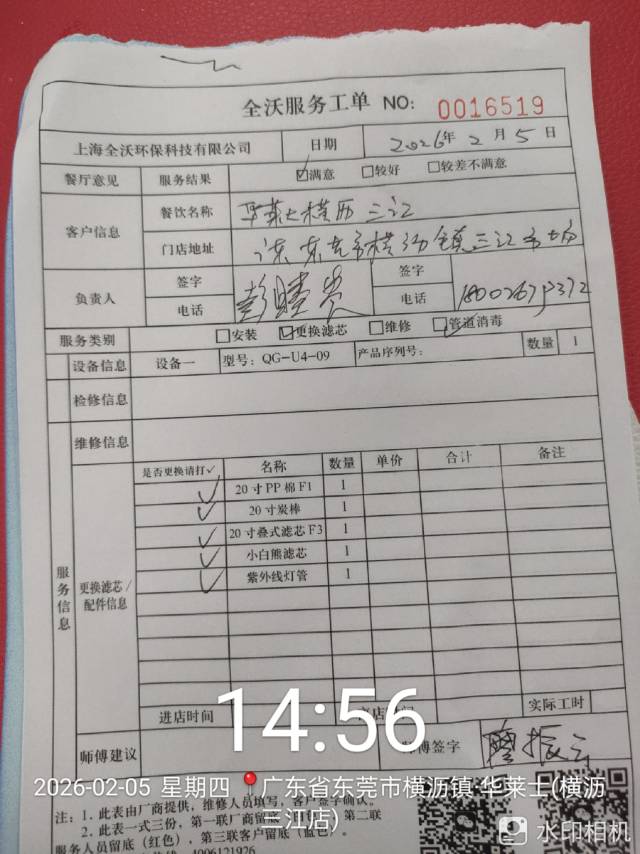 全沃服务工单 NO: 0016519
上海全沃环保科技有限公司 日期 2026年 2月 5日
餐厅意见 服务结果 ☑满意 □较好 □较差不满意
客户信息 餐饮名称 华莱士横历三江
门店地址 东莞市横沥镇三江市场
负责人 签字 签字
电话 电话
服务类别 □安装 ☑更换滤芯 □维修 ☑管道消毒
设备信息 设备一 型号：QG-U4-09 产品序列号： 数量 1
检修信息
维修信息
服务信息
更换滤芯/配件信息
是否更换请打✓ 名称 数量 单价 合计 备注
✓ 20寸PP棉F1 1
✓ 20寸炭棒 1
✓ 20寸叠式滤芯F3 1
✓ 小白熊滤芯 1
✓ 紫外线灯管 1
进店时间 实际工时
14:56
师傅建议 师傅签字
2026-02-05 星期四 广东省东莞市横沥镇·华莱士(横沥
三江店)
注：1. 此表由厂商提供，维修人员填写，客户签字确认。
2. 此表一式三份，第一联厂商留底 第二联
服务人员留底（红色），第三联客户留底（蓝色）。
4006121926
水印相机